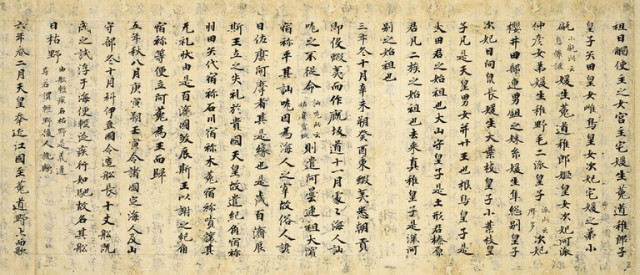 祖日觸使主之女宮主宅媛生菟道稚郎子
皇子矢田皇女雌鳥皇女次妃宅媛之弟小
甂小甂此云烏儺謎媛生菟道稚郎姫皇女次妃河派
仲彦女弟媛生稚野毛二派皇子派此云摩多次妃
櫻井田部連男鉏之妹糸媛生隼総別皇子
次妃日向泉長媛生大葉枝皇子小葉枝皇
子凡是天皇男女并廿王也根鳥皇子是
大田君之始祖也大山守皇子是土形君榛原
君凡二族之始祖也去来真稚皇子是深河
別之始祖也
三年冬十月辛未朔癸酉東蝦夷悉朝貢
即役蝦夷而作厩坂道十一月處々海人訕
哤之不従命訕哤此云佐麼賣玖則遣阿曇連祖大濱
宿祢平其訕哤因為海人之宰故俗人諺
曰佐麼阿摩者其是縁也是歳百濟辰
斯王立之失礼於貴國天皇故遣紀角宿祢
羽田矢代宿祢石川宿祢木菟宿祢嘖讓其
无礼状由是百濟國殺辰斯王以謝之紀角
宿祢等便立阿花為王而歸
五年秋八月庚寅朔壬寅令諸國定海人及山
守部冬十月科伊豆國令造船長十丈船既
成之試浮于海便輕泛疾行如馳故名其船
曰枯野由船輕疾名枯野是義違焉若謂輕野後人訛歟
六年春二月天皇幸近江國至菟道野上而歌